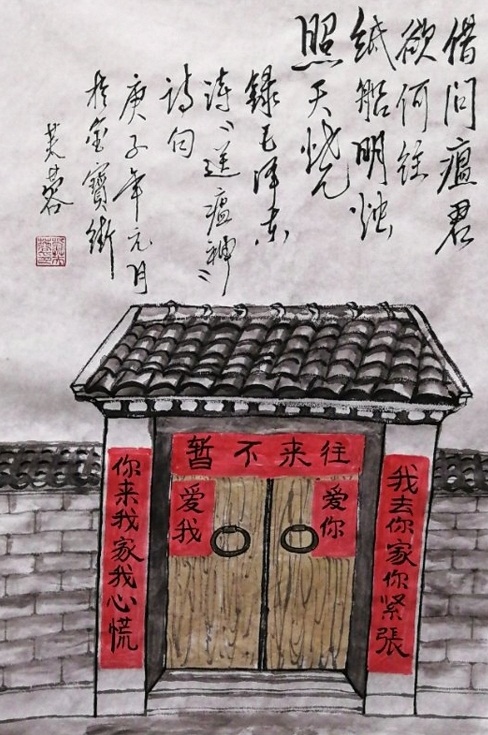 借问瘟君
欲何往
纸船明烛
照天烧
录毛泽东
诗《送瘟神》
诗句
庚子年元月
于金宝街
暂不来往
我去你家你紧張
你来我家我心慌
爱你
爱我